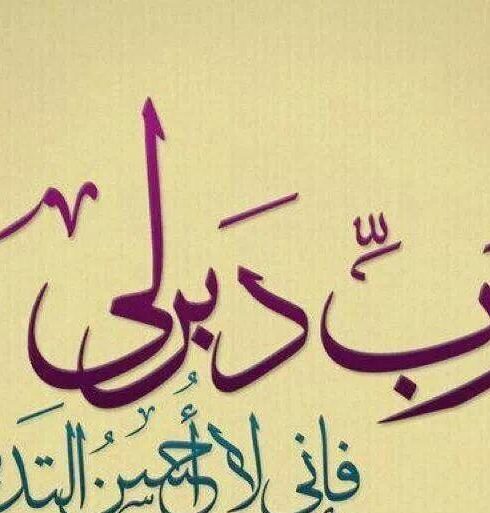 رَبِّ دَبر لى
فإنى لا أُحسنُ التَد